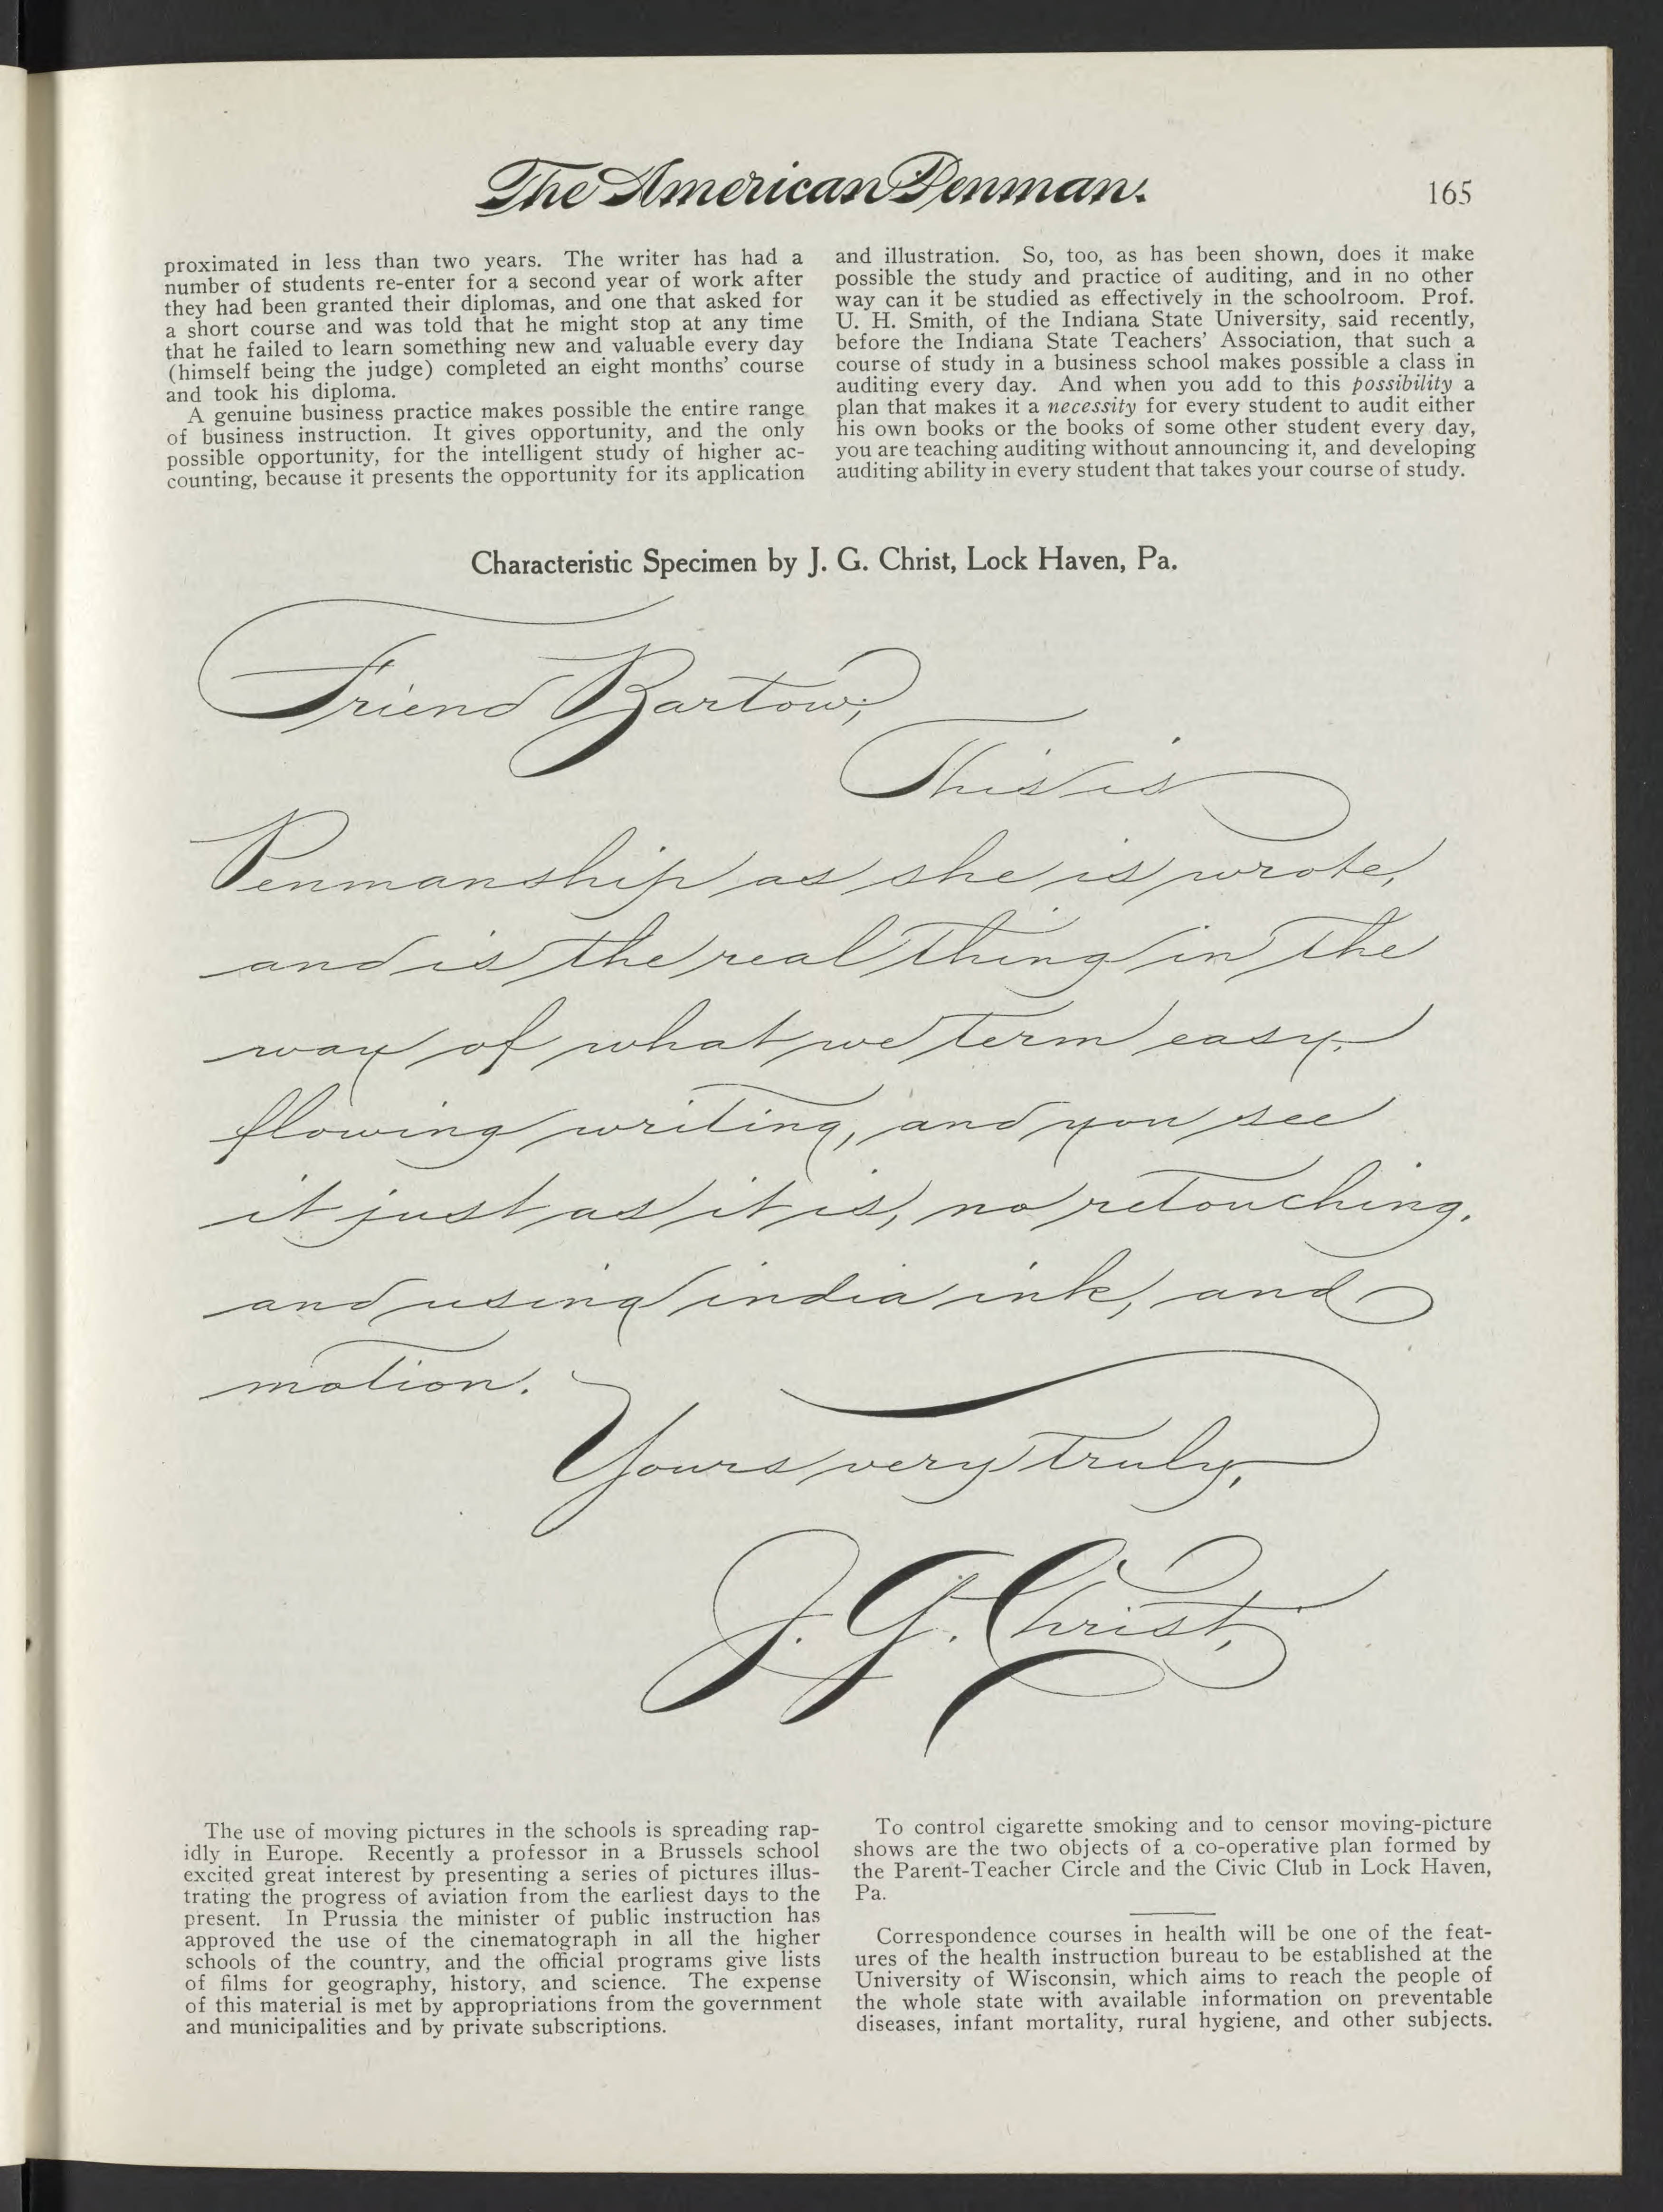 The American Penman.
165
proximated in less than two years. The writer has had a
number of students re-enter for a second year of work after
they had been granted their diplomas, and one that asked for
a short course and was told that he might stop at any time
that he failed to learn something new and valuable every day
(himself being the judge) completed an eight months' course
and took his diploma.
A genuine business practice makes possible the entire range
of business instruction. It gives opportunity, and the only
possible opportunity, for the intelligent study of higher ac-
counting, because it presents the opportunity for its application
and illustration. So, too, as has been shown, does it make
possible the study and practice of auditing, and in no other
way can it be studied as effectively in the schoolroom. Prof.
U. H. Smith, of the Indiana State University, said recently,
before the Indiana State Teachers' Association, that such a
course of study in a business school makes possible a class in
auditing every day. And when you add to this possibility a
plan that makes it a necessity for every student to audit either
his own books or the books of some other student every day,
you are teaching auditing without announcing it, and developing
auditing ability in every student that takes your course of study.
Characteristic Specimen by J. G. Christ, Lock Haven, Pa.
Friend Bartow;
This is
Penmanship as she is wrote,
and is the real thing in the
way of what we term easy,
flowing writing, and you see
it just as it is, no retouching.
and using india ink, and
motion.
Yours very truly,
J. G. Christ,
The use of moving pictures in the schools is spreading rap-
idly in Europe. Recently a professor in a Brussels school
excited great interest by presenting a series of pictures illus-
trating the progress of aviation from the earliest days to the
present. In Prussia the minister of public instruction has
approved the use of the cinematograph in all the higher
schools of the country, and the official programs give lists
of films for geography, history, and science. The expense
of this material is met by appropriations from the government
and municipalities and by private subscriptions.
To control cigarette smoking and to censor moving-picture
shows are the two objects of a co-operative plan formed by
the Parent-Teacher Circle and the Civic Club in Lock Haven,
Pa.
Correspondence courses in health will be one of the feat-
ures of the health instruction bureau to be established at the
University of Wisconsin, which aims to reach the people of
the whole state with available information on preventable
diseases, infant mortality, rural hygiene, and other subjects.